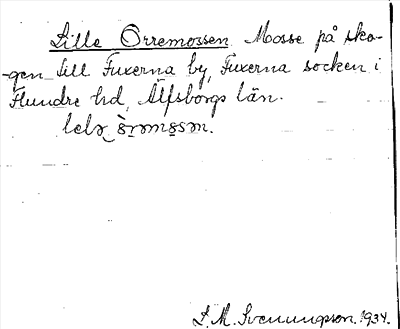 Lille Orremossen. Mosse på sko-
-gen till Fuxerna by, Fuxerna socken i
Flundre hd, Älfsborgs län.
lelə òrəmo̤səm.
S. M. Svenungsson. 1934.